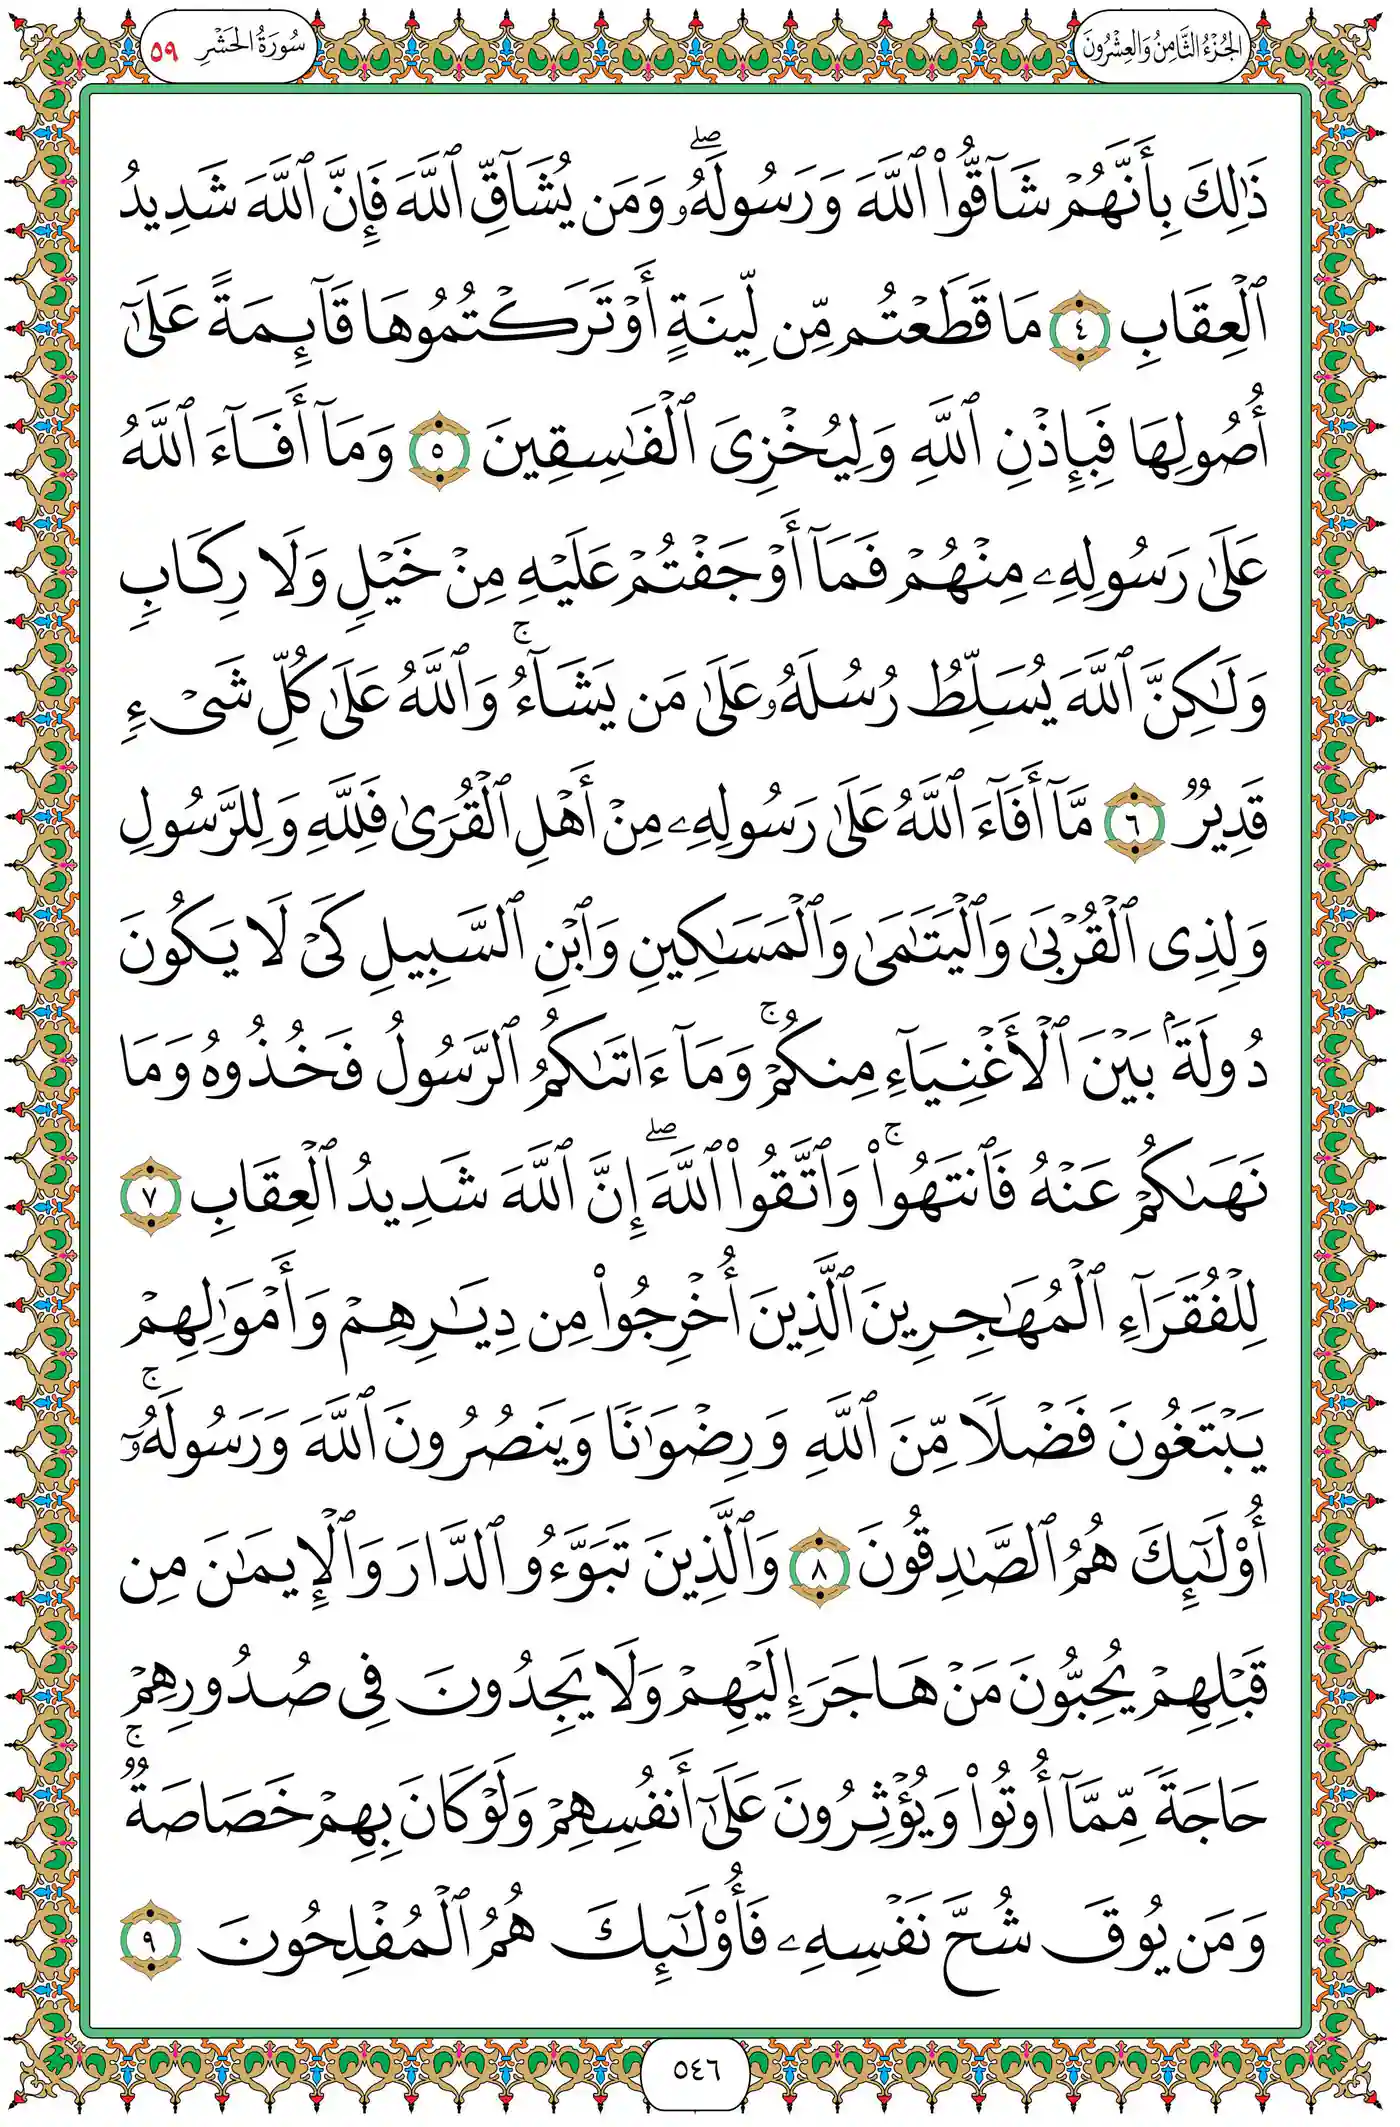 الجزء الثامن والعشرون
سورة الحشر ٥٩
ذَٰلِكَ بِأَنَّهُمۡ شَآقُّواْ ٱللَّهَ وَرَسُولَهُۥۖ وَمَن يُشَآقِّ ٱللَّهَ فَإِنَّ ٱللَّهَ شَدِيدُ
ٱلۡعِقَابِ ٤ مَا قَطَعۡتُم مِّن لِّينَةٍ أَوۡ تَرَكۡتُمُوهَا قَآئِمَةً عَلَىٰٓ
أُصُولِهَا فَبِإِذۡنِ ٱللَّهِ وَلِيُخۡزِيَ ٱلۡفَٰسِقِينَ ٥ وَمَآ أَفَآءَ ٱللَّهُ
عَلَىٰ رَسُولِهِۦ مِنۡهُمۡ فَمَآ أَوۡجَفۡتُمۡ عَلَيۡهِ مِنۡ خَيۡلٖ وَلَا رِكَابٖ
وَلَٰكِنَّ ٱللَّهَ يُسَلِّطُ رُسُلَهُۥ عَلَىٰ مَن يَشَآءُۚ وَٱللَّهُ عَلَىٰ كُلِّ شَيۡءٖ
قَدِيرٞ ٦ مَّآ أَفَآءَ ٱللَّهُ عَلَىٰ رَسُولِهِۦ مِنۡ أَهۡلِ ٱلۡقُرَىٰ فَلِلَّهِ وَلِلرَّسُولِ
وَلِذِي ٱلۡقُرۡبَىٰ وَٱلۡيَتَٰمَىٰ وَٱلۡمَسَٰكِينِ وَٱبۡنِ ٱلسَّبِيلِ كَيۡ لَا يَكُونَ
دُولَةَۢ بَيۡنَ ٱلۡأَغۡنِيَآءِ مِنكُمۡۚ وَمَآ ءَاتَىٰكُمُ ٱلرَّسُولُ فَخُذُوهُ وَمَا
نَهَىٰكُمۡ عَنۡهُ فَٱنتَهُواْۚ وَٱتَّقُواْ ٱللَّهَۖ إِنَّ ٱللَّهَ شَدِيدُ ٱلۡعِقَابِ ٧
لِلۡفُقَرَآءِ ٱلۡمُهَٰجِرِينَ ٱلَّذِينَ أُخۡرِجُواْ مِن دِيَٰرِهِمۡ وَأَمۡوَٰلِهِمۡ
يَبۡتَغُونَ فَضۡلٗا مِّنَ ٱللَّهِ وَرِضۡوَٰنٗا وَيَنصُرُونَ ٱللَّهَ وَرَسُولَهُۥٓۚ
أُوْلَٰٓئِكَ هُمُ ٱلصَّٰدِقُونَ ٨ وَٱلَّذِينَ تَبَوَّءُو ٱلدَّارَ وَٱلۡإِيمَٰنَ مِن
قَبۡلِهِمۡ يُحِبُّونَ مَنۡ هَاجَرَ إِلَيۡهِمۡ وَلَا يَجِدُونَ فِي صُدُورِهِمۡ
حَاجَةٗ مِّمَّآ أُوتُواْ وَيُؤۡثِرُونَ عَلَىٰٓ أَنفُسِهِمۡ وَلَوۡ كَانَ بِهِمۡ خَصَاصَةٞۚ
وَمَن يُوقَ شُحَّ نَفۡسِهِۦ فَأُوْلَٰٓئِكَ هُمُ ٱلۡمُفۡلِحُونَ ٩
٥٤٦